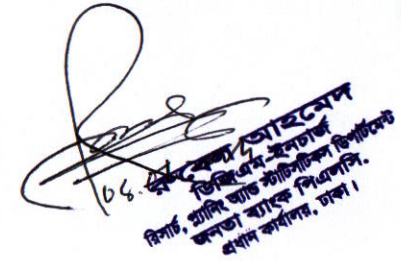 আহমেদ
ডিজিএম-ইনচার্জ
রিসার্চ, প্ল্যানিং অ্যান্ড স্ট্যাটিসটিকস ডিপার্টমেন্ট
জনতা ব্যাংক পিএলসি.
প্রধান কার্যালয়, ঢাকা।